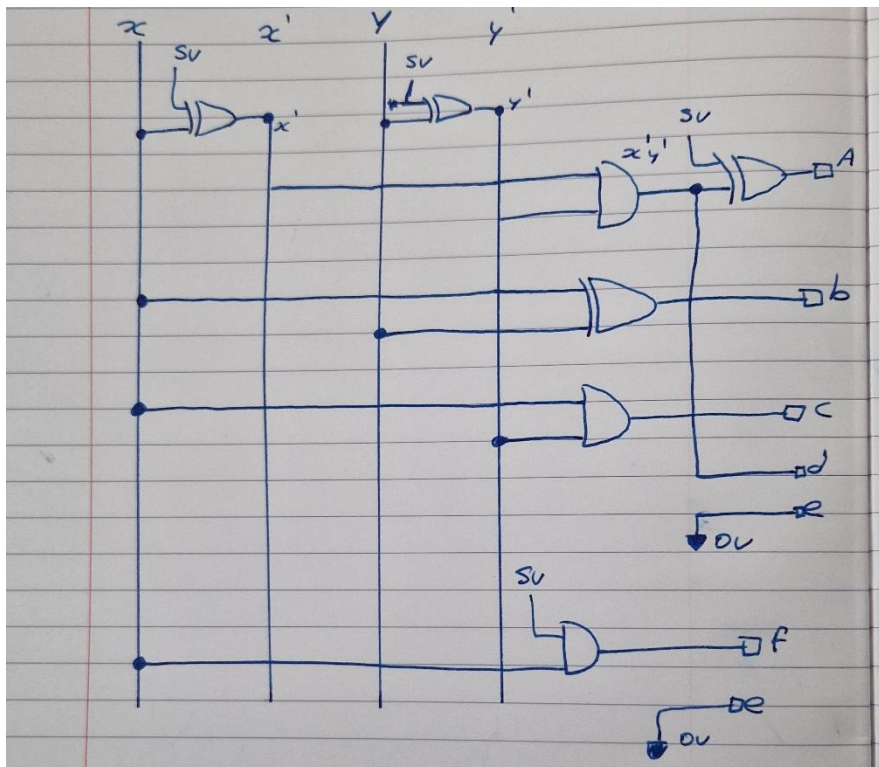 x x' Y y'
5V
5V
x'
y'
5V
x'y'
A
b
c
d
e
0V
5V
f
e
0V